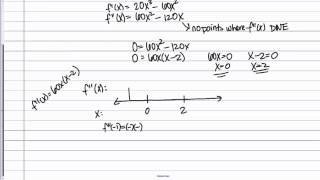 f'(x) = 20x³ - 60x²
f''(x) = 60x² - 120x
> no points where f''(x) DNE
0 = 60x² - 120x
0 = 60x(x-2)
60x=0 x-2=0
x=0 x=2
f''(x) = 60x(x-2)
f''(x):
x: 0 2
f''(-1) = (-)(-)